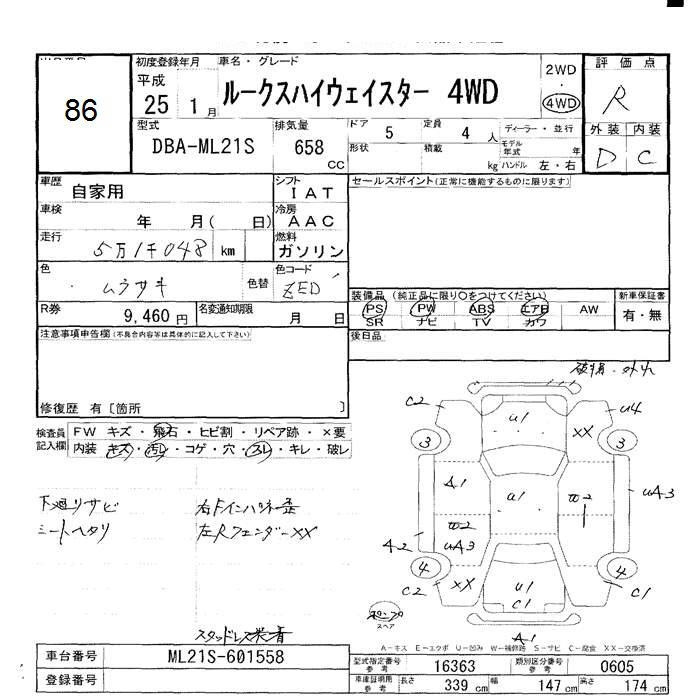 86
初度登録年月
平成
25 1月
車名・グレード
ルークスハイウェイスター 4WD
2WD
・
4WD
評価点
R
外装 内装
D C
型式
DBA-ML21S
排気量
658
CC
ドア 5
定員 4 人
形状
積載
kg
ディーラー・並行
モデル年式 年
ハンドル 左・右
車歴
自家用
シフト
IAT
車検
年 月( 日)
冷房
AAC
走行
5万1千048 km
燃料
ガソリン
色
ムラサキ
色替
色コード
ZED
R券
9,460円
名変通知期限
月 日
セールスポイント(正常に機能するものに限ります)
装備品(純正品に限り○をつけてください)
PS PW ABS エアB AW
SR ナビ TV カワ
新車保証書
有・無
後日品
注意事項申告欄(不具合内容等は具体的に記入して下さい)
修復歴 有〔箇所 〕
検査員記入欄
FW キズ・飛石・ヒビ割・リペア跡・×要
内装 キズ・汚レ・コゲ・穴・スレ・キレ・破レ
下廻リサビ
シートヘタリ
左Rフェンダー××
スタッドレス装着
破損・外れ
C2
U4
U1
XX
3
3
A1
U1
W2
UA3
W2
UA3
A2
4
4
C2
XX
U1
C1
C1
A1
スペア
A-キズ E-エクボ U-凹み W-補修跡 S-サビ C-腐食 XX-交換済
車台番号
ML21S-601558
登録番号
型式指定番号参考
16363
類別区分番号参考
0605
車庫証明用参考
長さ 339 cm
巾 147 cm
高さ 174 cm